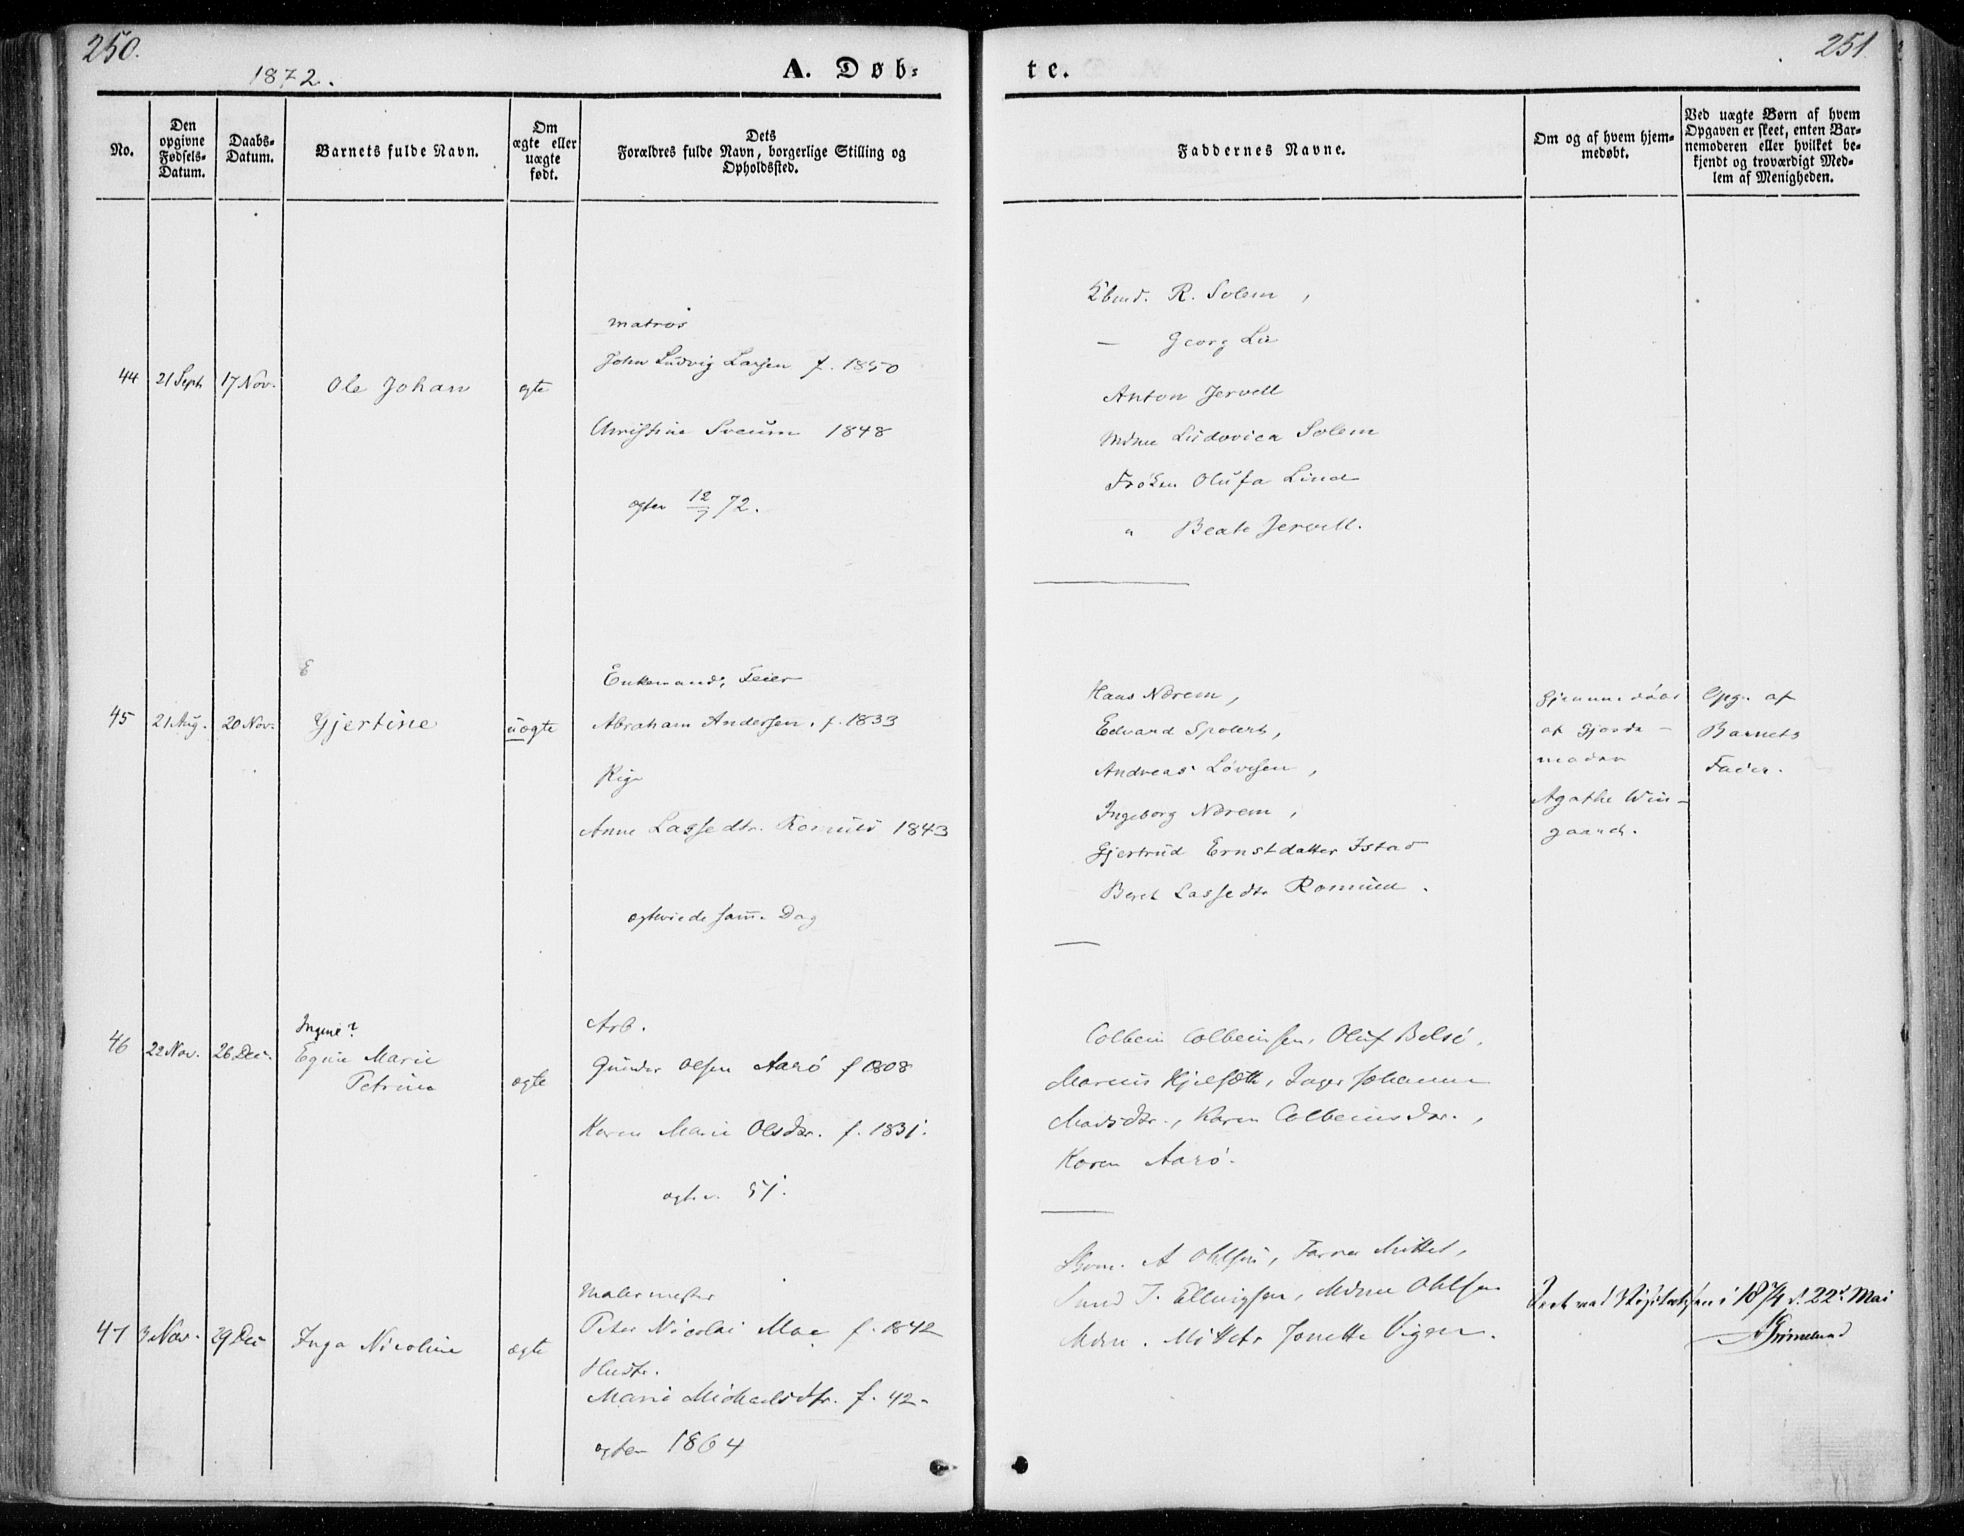 250.
1872.
A. Døb-
te.
251
No.
Den
opgivne
Fødsels-
Datum.
Daabs-
Datum.
Barnets fulde Navn.
Om
ægte eller
uægte
født.
Dets
Forældres fulde Navn, borgerlige Stilling og
Opholdssted.
Faddernes Navne.
Om og af hvem hjem-
medøbt.
Ved uægte Børn af hvem
Opgaven er skeet, enten Bar-
nemoderen eller hvilket be-
kjendt og troværdigt Med-
lem af Menigheden.
44
21 Sept
17 Nov.
Ole Johan
egte
matros
John Ludvig Larsen f. 1850
Christine Sveum 1848
egtev 12/7 72.
R. Solem,
— Georg Lie
Anton Jervell
Mdme Ludovica Solem
Frøken Olufa Lind
" Beate Jervell.
45
21 Aug.
20 Nov.
Gjertine
uegte
Enkemand, Feier
Abraham Andersen, f. 1833
Pige
Anne Lassedtr. 1843
egteviede sam. Dag
Hans Nerem,
Edvard
Andreas Løvesen,
Ingeborg Nerem,
Gjertrud Ernstdatter Istad
Beret Lassedtr.
Hjemmedøbt
af Gjorde-
moder
Agathe Win-
gaard.
Opg. af
Barnets
Fader.
46
22 Nov.
26 Dec.
Ingine?
Egine Marie
Petrine
egte
Arb.
Gunder Olsen Aarø f 1808
Karen Marie Olsdtr. f. 1831.
egtev. 51.
Colbein Colbeinsen, Oluf Bolsø,
Marius Hjelset, Inger Johanne
Madsdtr., Karen Colbeinsdtr.,
Karen Aarø.
47
3 Nov.
29 Dec
Inga Nicoline
egte
Malermester
Peter Nicolai Moe f. 1842
Hustr.
Marie Michaelsdtr. f. 42-
egtev 1864
A Ohlsen, Farver Mittet,
J. Ellingsen, Mdme Ohlsen
Mdm. Mittet, Jonette Vigger.
Rett ved Visitatsen i 1874 d. 22de Mai
Grimelund